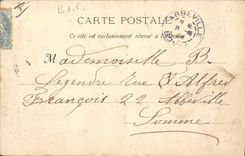 B.d.R.
CARTE POSTALE
ABBEVILLE
Ce côté est exclusivement réservé à l'adresse
Mademoiselle B.
Legendre Rue St Alfred
François 22 Abbeville
Somme